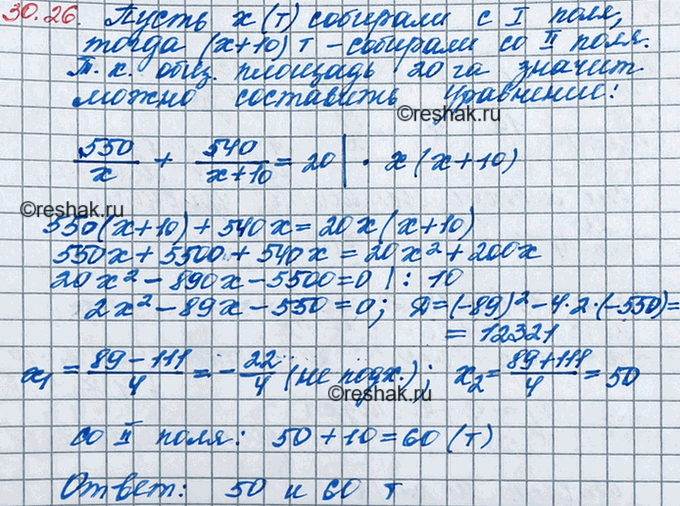 30.26. Пусть x (т) собирали с I поля,
тогда (x+10) т - собирали со II поля.
Т. к. общ. площадь 20 га значит
можно составить уравнение:
©reshak.ru
550/x + 540/(x+10) = 20 | · x (x+10)
©reshak.ru
550(x+10) + 540x = 20x (x+10)
550x + 5500 + 540x = 20x² + 200x
20x² - 890x - 5500 = 0 | : 10
2x² - 89x - 550 = 0; Д = (-89)² - 4·2·(-550) =
= 12321
x₁ = (89 - 111)/4 = - 22/4 (не подх.); x₂ = (89+111)/4 = 50
©reshak.ru
со II поля: 50 + 10 = 60 (т)
Ответ: 50 и 60 т